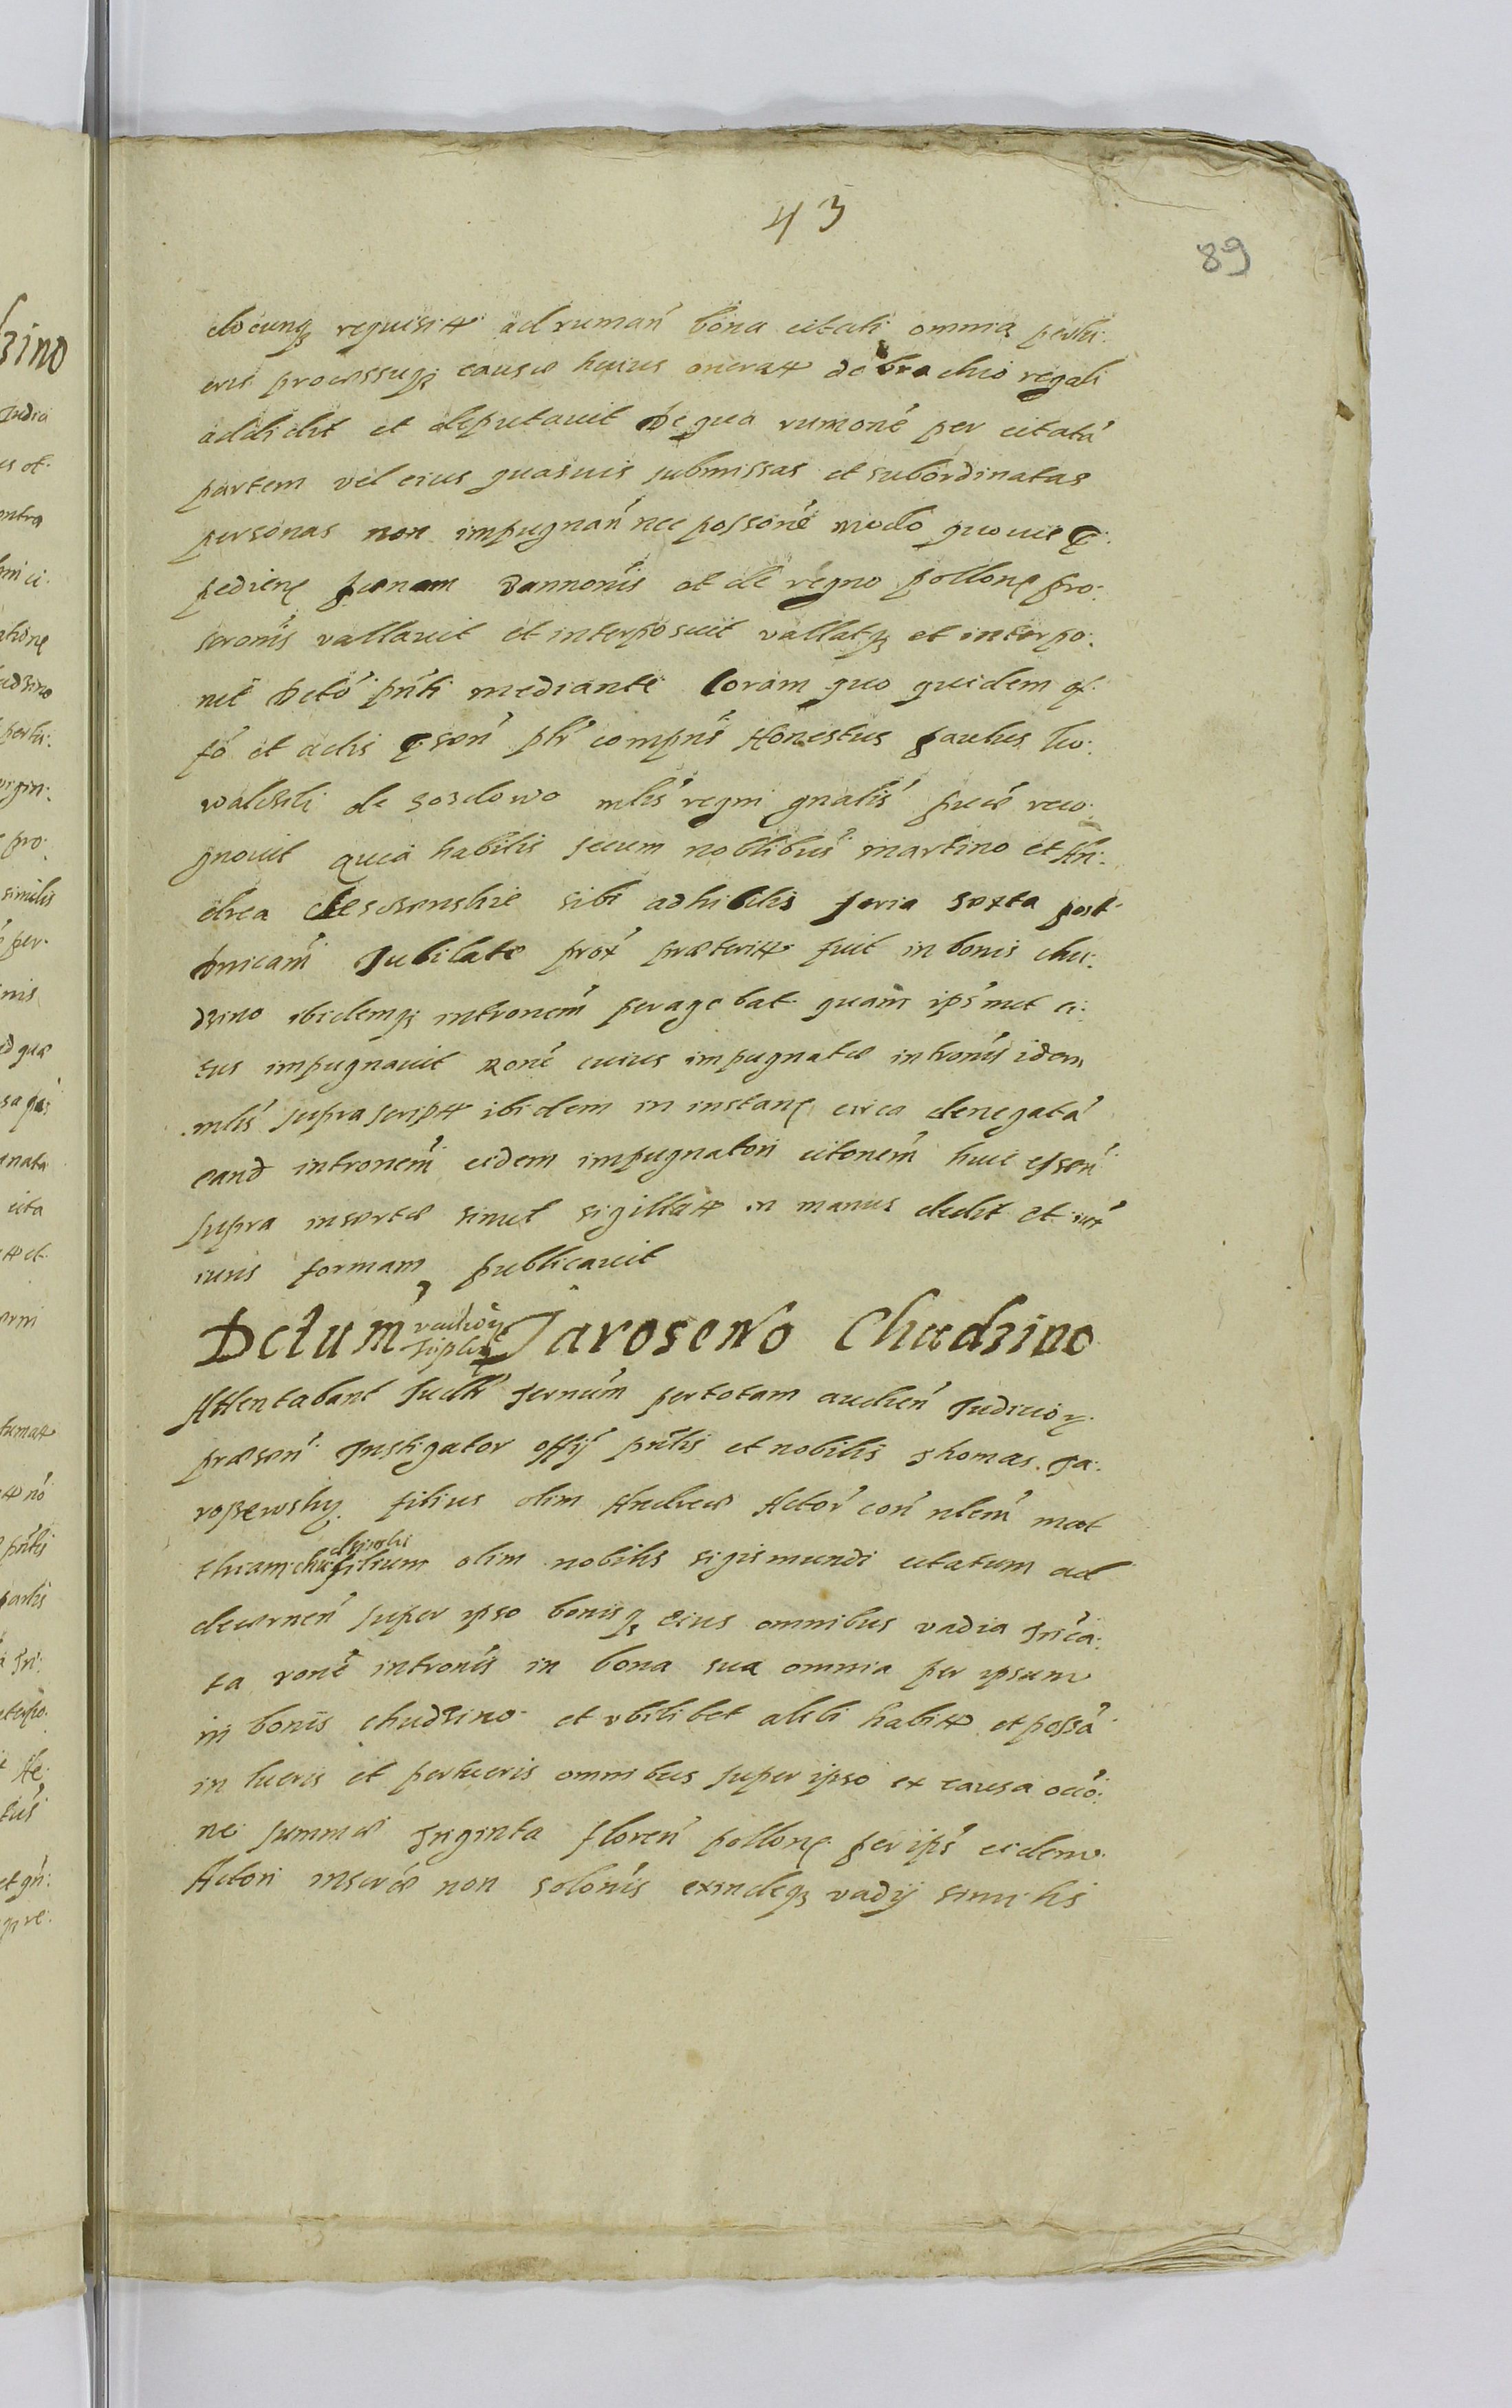 43
89
docunq requisit ad ruman bona citati omnia perlu:
cris processuq causæ huius onerat de brachio regali
addidit et deputauit De qua rumone per citatã
partem vel eius quasuis submissas et subordinatas
personas non impugnan nec possone modo quouis
pedien pænam bannonis et de regno pollone pro:
scronis vallauit et interposuit vallatq et interpo:
nit Deto pnti mediante Coram quo quidem of:
fo et actis pson pltr compns Honestus paulus ko:
walski de sosdowo mlis regni gnalis puce reco:
gnouit quia habitis secum noblibus martino et An:
drea sibi adhibitis feria sexta post
dnicam Jubilate prox præterit fuit in bonis chu:
dzino ibidemq intronem peragebat quam ipsmet ci:
tus impugnauit rone cuius impugnatæ intronis idem
mlis suprascript ibidem in instan circa denegatã
eand intronem eidem impugnatori citonem huic essen
supra insertæ simul sigillat in manus dedit et iux
iuris formam publicauit
Dctum vadior triplex Jaroseno Chudzino
Attentabant Juditr ternum per totam audien Judicior
præsen Instigator offij pntis et nobilis Thomas Ja:
roszewsky filius olim Andreæ Actor con nlem mat
thiam chudzinski filium olim nobilis sigismundi citatum ad
decernen super ipso bonisq eius omnibus vadia trica:
ta rone intronis in bona sua omnia per ipsum
in bonis chudzino et vbilibet alibi habit et possa
in lucris et perlucris omnibus super ipso ex causa occo:
ne summæ triginta floren pollone per ips eidem
Actori inscræ non solonis exindeq vadij similis